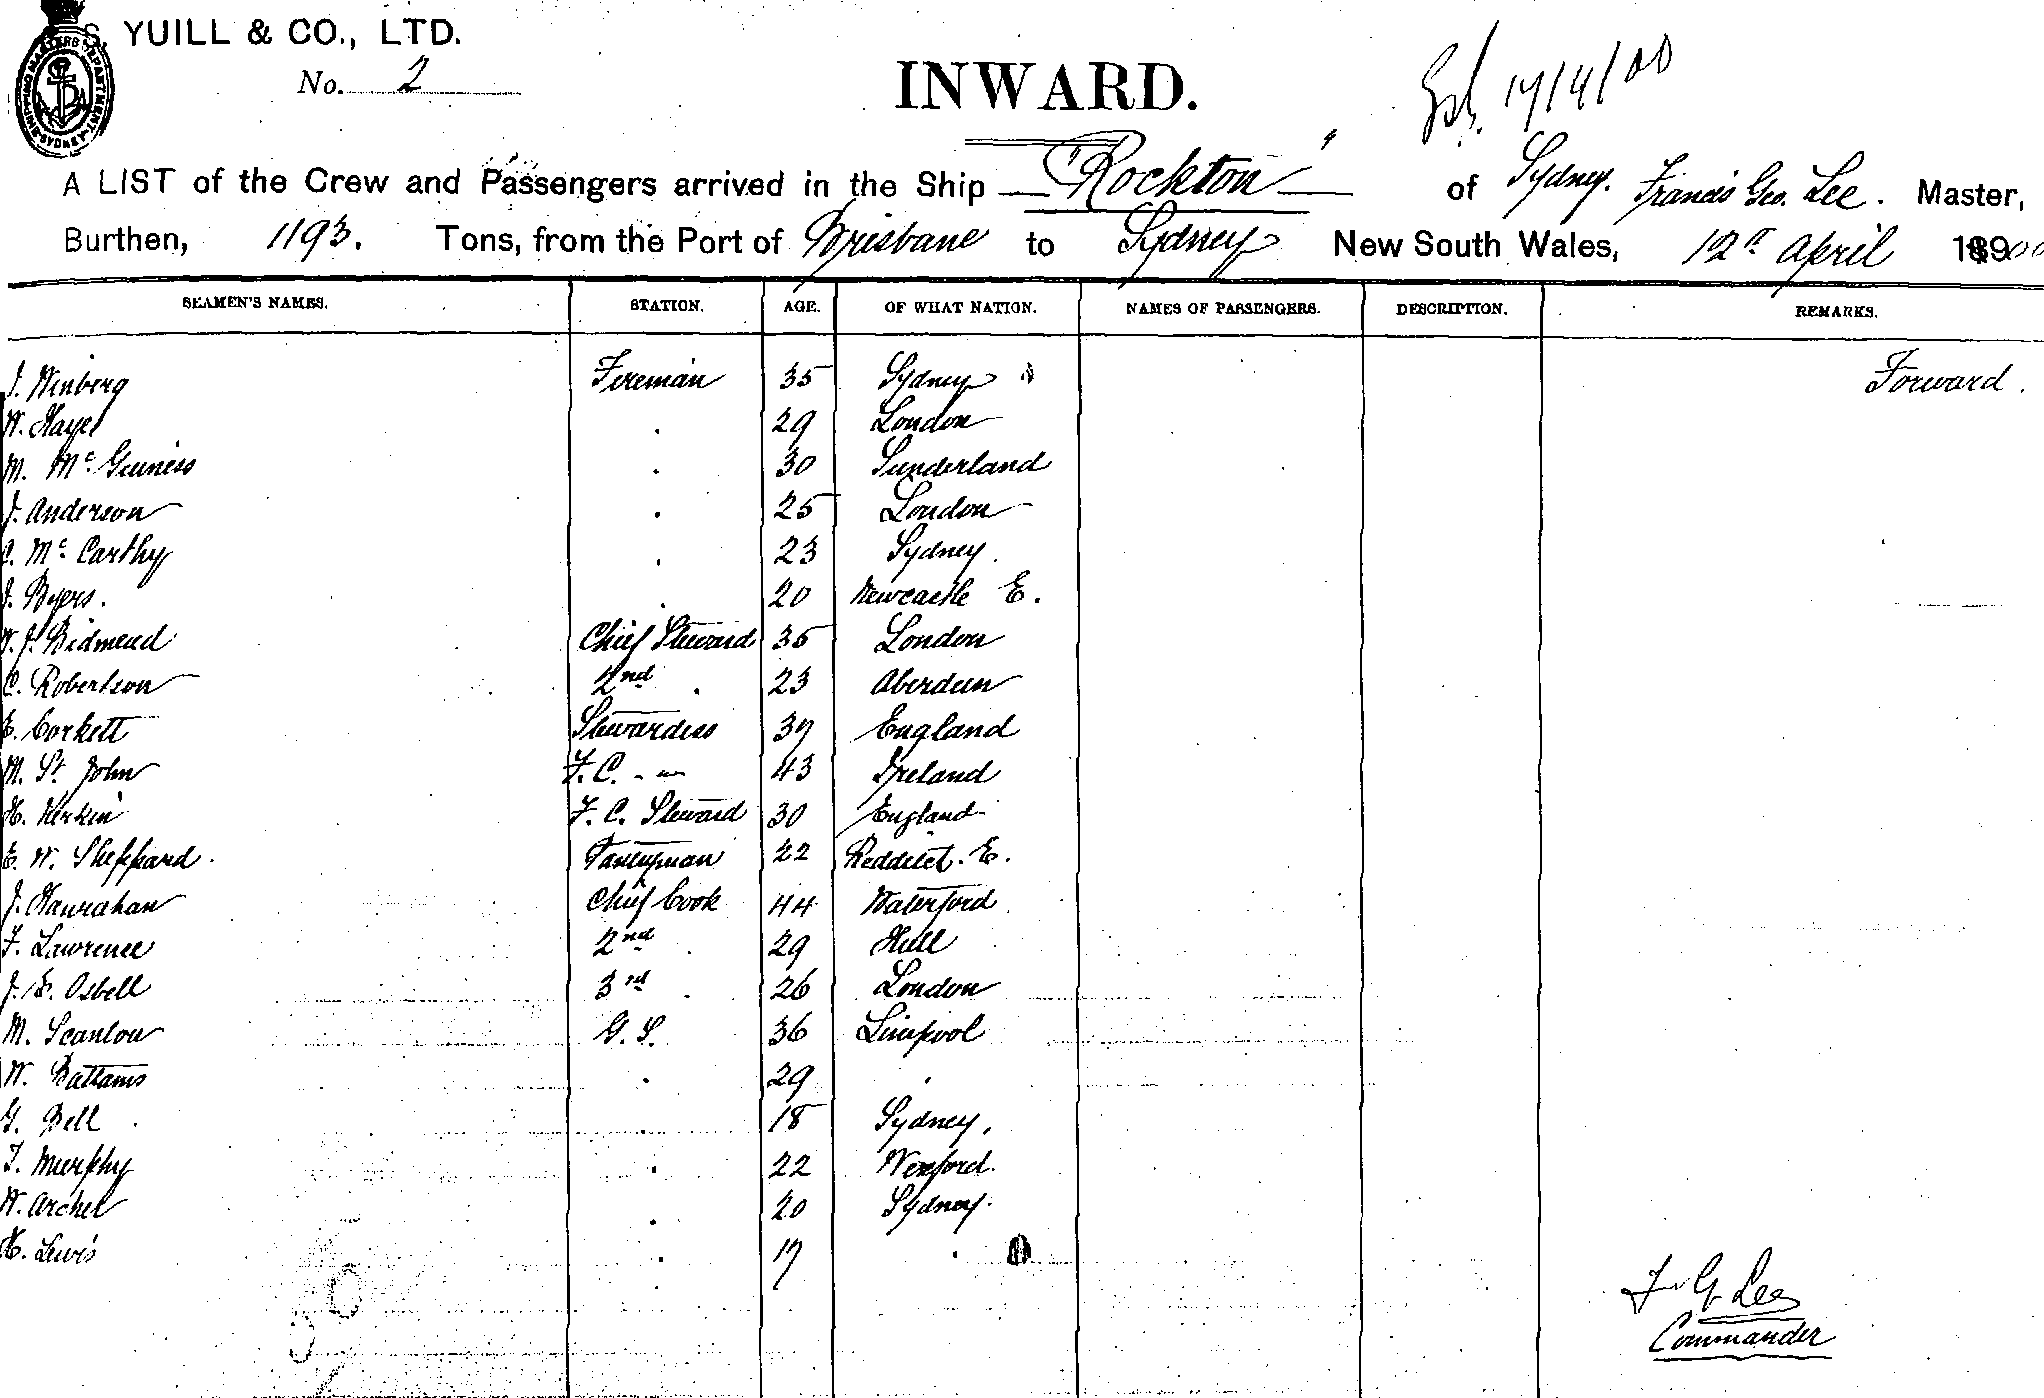 S. YUILL & CO., LTD.
No. 2
INWARD.
17/4/00
A LIST of the Crew and Passengers arrived in the Ship "Rockton" of Sydney. Francis Geo. Lee. Master,
Burthen, 1193. Tons, from the Port of Brisbane to Sydney New South Wales, 12th April 1900
SEAMEN'S NAMES. STATION. AGE. OF WHAT NATION. NAMES OF PASSENGERS. DESCRIPTION. REMARKS.
J. Winberg Fireman 35 Sydney Forward.
W. Hayes . 29 London
M. McGuiness . 30 Sunderland
J. Anderson . 25 London
C. McCarthy . 23 Sydney.
J. Byers. . 20 Newcastle E.
W. J. Bidmead Chief Steward 35 London
C. Robertson 2nd . 23 Aberdeen
E. Corkett Stewardess 37 England
M. St. John F. C. - " - 43 Ireland
H. Kerkin F. C. Steward 30 England
E. W. Sheppard. Pantryman 22 E.
J. Hanrahan Chief Cook 44 Waterford
F. Lawrence 2nd . 29 Hull
J. E. Osbell 3rd . 26 London
M. Scanlon G. S. 36 Liverpool
W. Battams . 29 .
G. Bell . 18 Sydney.
T. Murphy . 22 Wexford.
W. Archer . 20 Sydney.
H. Lewis . 17 .
F. G. Lee
Commander